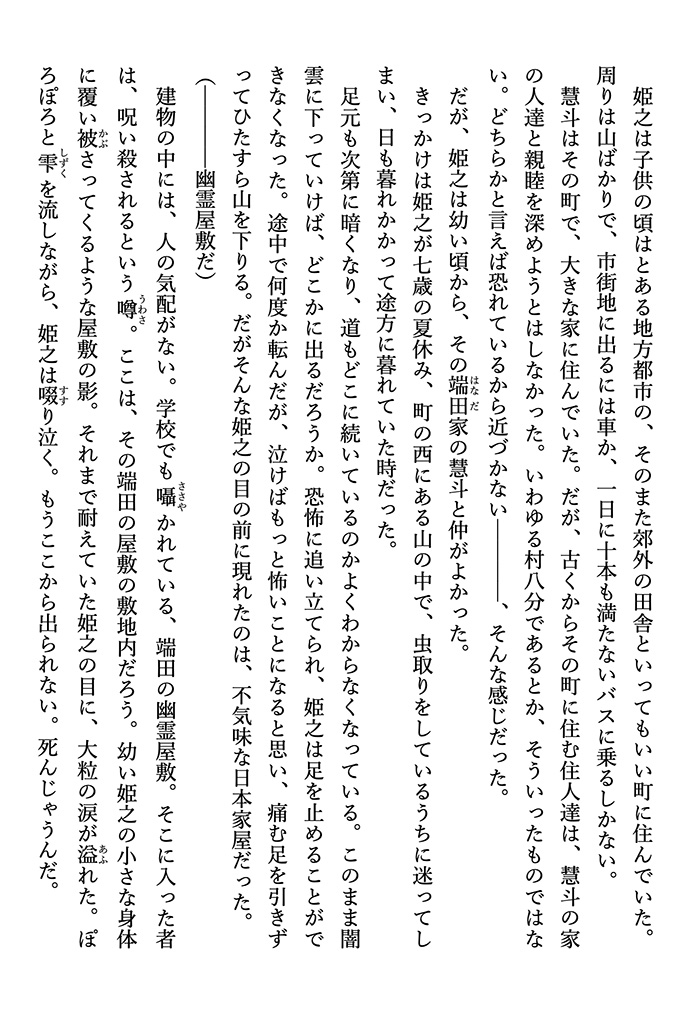 姫之は子供の頃はとある地方都市の、そのまた郊外の田舎といってもいい町に住んでいた。
周りは山ばかりで、市街地に出るには車か、一日に十本も満たないバスに乗るしかない。
　慧斗はその町で、大きな家に住んでいた。だが、古くからその町に住む住人達は、慧斗の家
の人達と親睦を深めようとはしなかった。いわゆる村八分であるとか、そういったものではな
い。どちらかと言えば恐れているから近づかない――――、そんな感じだった。
　だが、姫之は幼い頃から、その端田はなだ家の慧斗と仲がよかった。
　きっかけは姫之が七歳の夏休み、町の西にある山の中で、虫取りをしているうちに迷ってし
まい、日も暮れかかって途方に暮れていた時だった。
　足元も次第に暗くなり、道もどこに続いているのかよくわからなくなっている。このまま闇
雲に下っていけば、どこかに出るだろうか。恐怖に追い立てられ、姫之は足を止めることがで
きなくなった。途中で何度か転んだが、泣けばもっと怖いことになると思い、痛む足を引きず
ってひたすら山を下りる。だがそんな姫之の目の前に現れたのは、不気味な日本家屋だった。
（――――幽霊屋敷だ）
　建物の中には、人の気配がない。学校でも囁ささやかれている、端田の幽霊屋敷。そこに入った者
は、呪い殺されるという噂うわさ。ここは、その端田の屋敷の敷地内だろう。幼い姫之の小さな身体
に覆い被かぶさってくるような屋敷の影。それまで耐えていた姫之の目に、大粒の涙が溢あふれた。ぽ
ろぽろと雫しずくを流しながら、姫之は啜すすり泣く。もうここから出られない。死んじゃうんだ。